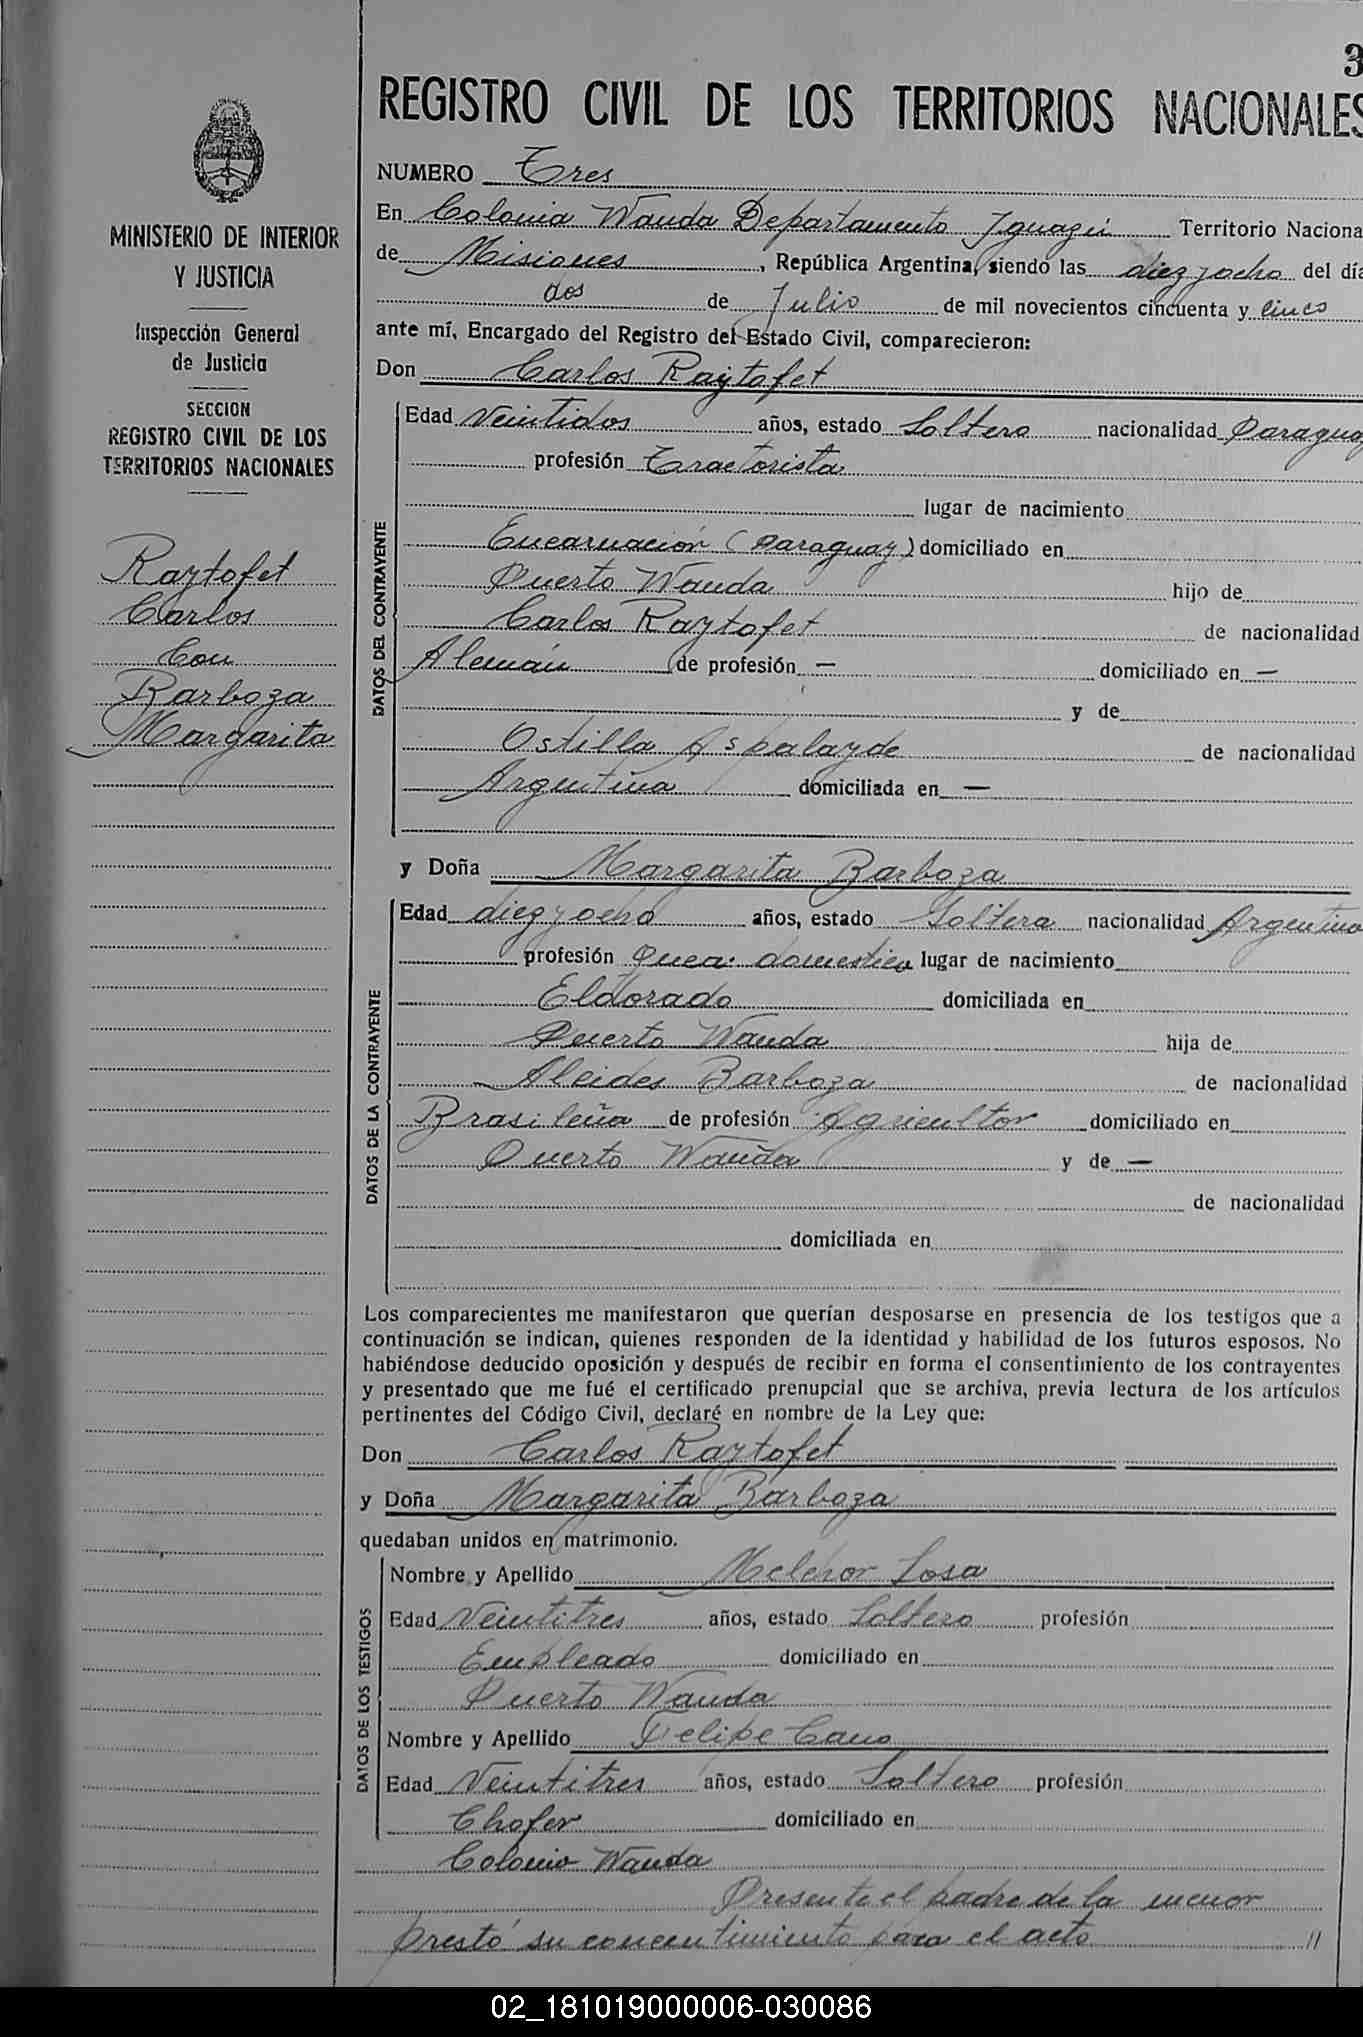 3
REGISTRO CIVIL DE LOS TERRITORIOS NACIONALES
MINISTERIO DE INTERIOR
Y JUSTICIA
Inspección General
de Justicia
SECCION
REGISTRO CIVIL DE LOS
TERRITORIOS NACIONALES
Raytofet
Carlos
Con
Barboza
Margarita
NUMERO Tres
En Colonia Wanda Departamento Iguazú Territorio Naciona
de Misiones, República Argentina, siendo las diez y ocho del día
dos de Julio de mil novecientos cincuenta y cinco
ante mí, Encargado del Registro del Estado Civil, comparecieron:
Don Carlos Raytofet
DATOS DEL CONTRAYENTE
Edad Veintidos años, estado Soltero nacionalidad Paraguay
profesión Tractorista
lugar de nacimiento
Encarnación (Paraguay) domiciliado en
Puerto Wanda hijo de
Carlos Raytofet de nacionalidad
Alemán de profesión — domiciliado en —
y de
Ostilla Aspalayde de nacionalidad
Argentina domiciliada en —
y Doña Margarita Barboza
DATOS DE LA CONTRAYENTE
Edad diez y ocho años, estado Soltera nacionalidad Argentina
profesión Quea. domestica lugar de nacimiento
Eldorado domiciliada en
Puerto Wanda hija de
Alcides Barboza de nacionalidad
Brasileña de profesión Agricultor domiciliado en
Puerto Wanda y de —
de nacionalidad
domiciliada en
Los comparecientes me manifestaron que querían desposarse en presencia de los testigos que a
continuación se indican, quienes responden de la identidad y habilidad de los futuros esposos. No
habiéndose deducido oposición y después de recibir en forma el consentimiento de los contrayentes
y presentado que me fué el certificado prenupcial que se archiva, previa lectura de los artículos
pertinentes del Código Civil, declaré en nombre de la Ley que:
Don Carlos Raytofet
y Doña Margarita Barboza
quedaban unidos en matrimonio.
DATOS DE LOS TESTIGOS
Nombre y Apellido Melchor Sosa
Edad Veintitres años, estado Soltero profesión
Empleado domiciliado en
Puerto Wanda
Nombre y Apellido Felipe Cano
Edad Veintitres años, estado Soltero profesión
Chofer domiciliado en
Colonia Wanda
Presente el padre de la menor
prestó su concentimiento para el acto //
02_181019000006-030086